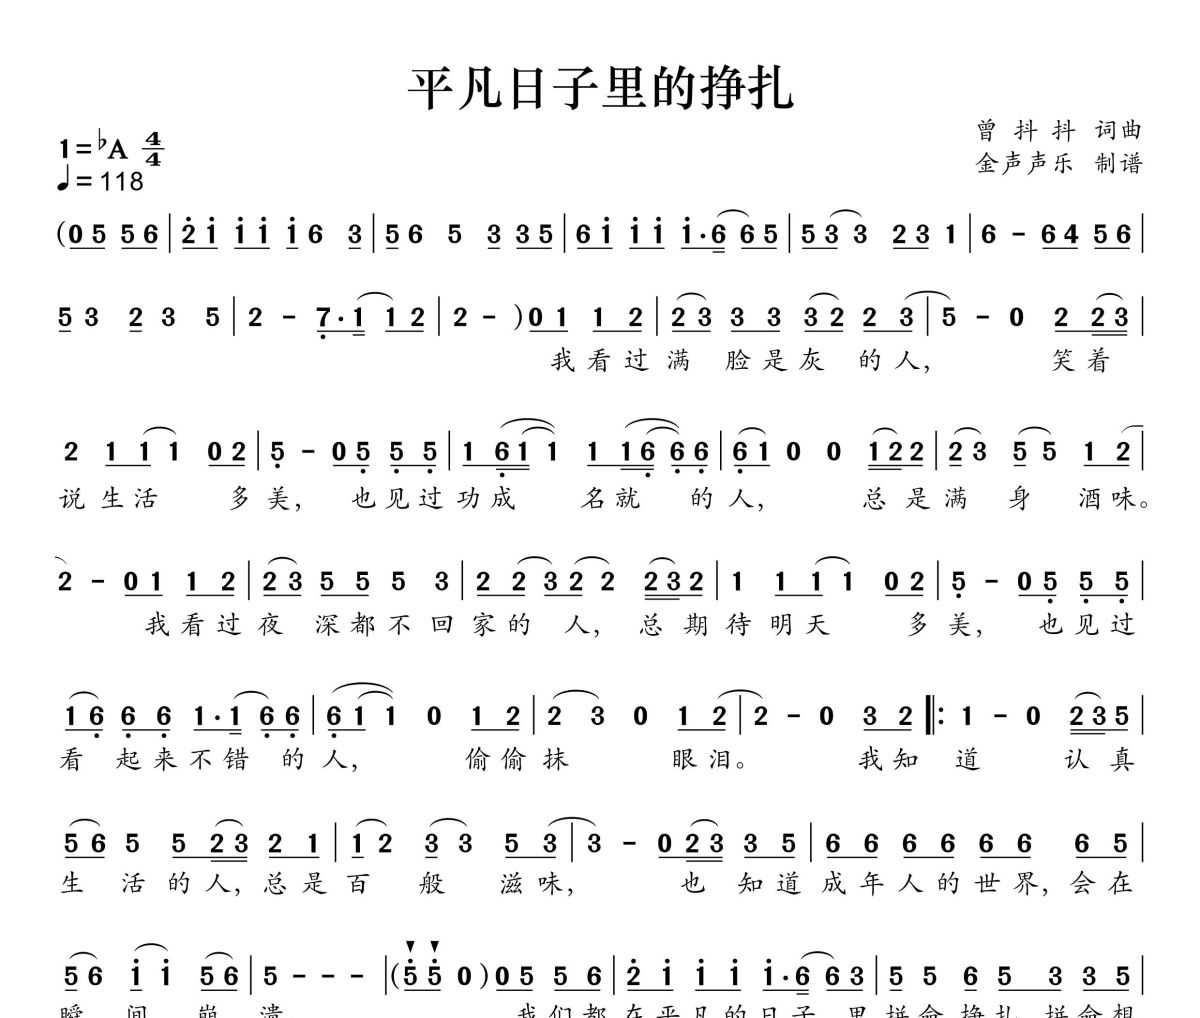 平凡日子里的挣扎
1=♭A 4/4
曾抖抖 词曲
♩=118
金声声乐 制谱
(05 56|2i ii i6 3|56 5 3 35|6i ii i·6 65|53 3 23 1|6 - 64 56|
53 2 3 5|2 - 7·1 12|2 - )01 12|23 33 32 23|5 - 0 223|
我看过满 脸是灰 的人, 笑着
2 111 02|5 - 05 55|1611 1166|61 0 0 122|23 55 12|
说生活 多美, 也见过功成 名就 的人, 总是满 身 酒味。
2 - 01 12|23 55 5 3|2232 2 232|1 111 02|5 - 05 55|
我看过夜 深都不回家的 人, 总期待明天 多美, 也见过
16 66 1·1 66|611 0 12|2 3 0 12|2 - 0 32‖:1 - 0 235|
看 起来不错 的人, 偷偷抹 眼泪。 我知 道 认真
56 5 523 21|12 33 53|3 - 023 35|66 66 66 65|
生 活的人,总是百 般 滋味, 也知道成年人的世界,会在
56 ii 56|5 - - -|(55 0)05 56|2i ii i·6 63|55 65 3 35|
瞬 间 崩 溃 我们都在平凡的日子 里拼命挣扎 拼命想